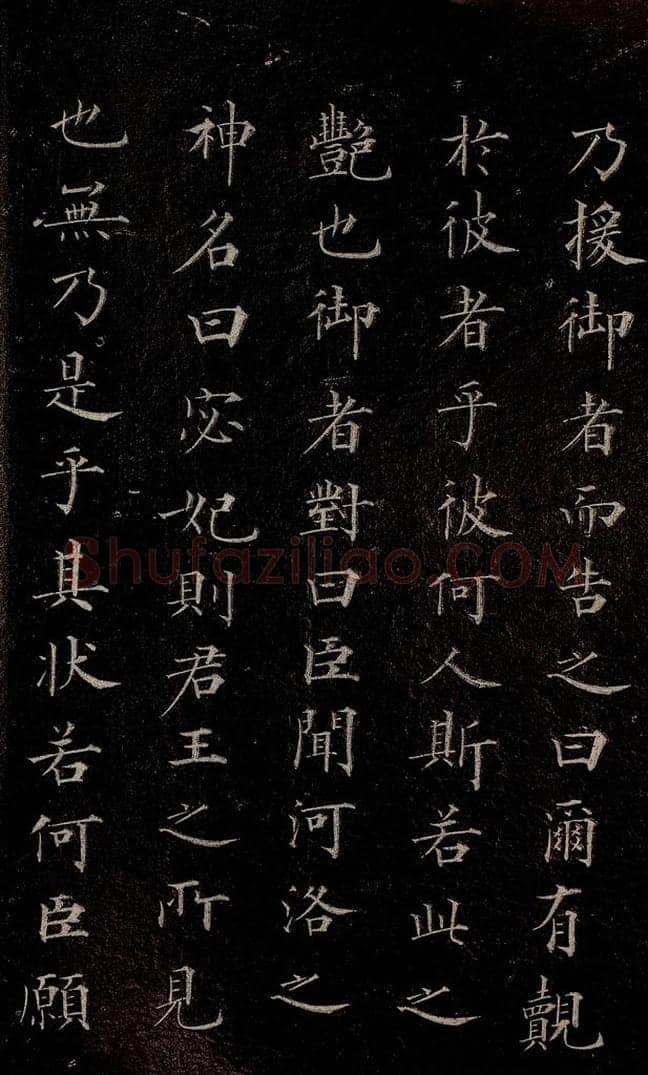 乃援御者而告之曰爾有覿
於彼者乎彼何人斯若此之
豔也御者對曰臣聞河洛之
神名曰宓妃則君王之所見
也無乃是乎其状若何臣願
Shufaziliao.COM